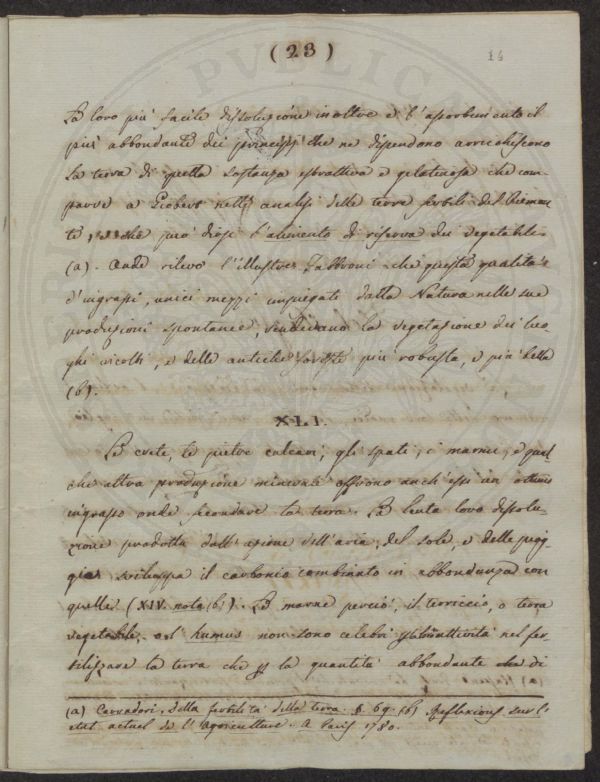 (23)
14
La loro più facile dissoluzione inoltre e l'assorbimento il
più abbondante dei principj che ne dipendono arricchiscono
la terra di quella sostanza estrattiva e gelatinosa che com-
parve a Giobert nelle analisi delle terre fertili del Piemon-
te, e che può dirsi l'alimento di riserva dei vegetabili
(a). Onde rilevò l'illustre Fabbroni che questa qualità
d'ingrassi, unici mezzi impiegati dalla Natura nelle sue
produzioni spontanee, rendevano la vegetazione dei luo-
ghi incolti, e delle antiche foreste più robusta, e più bella
(b).
XLI.
Le crete, le pietre calcari, gli spati, i marmi, e qual-
che altra produzione minerale offrono anch'essi un ottimo
ingrasso onde fecondare la terra. La lenta loro dissolu-
zione prodotta dall'azione dell'aria, del sole, e delle piog-
gie sviluppa il carbonio combinato in abbondanza con
quelle (XIV. nota (b)). Le marne perciò, il terriccio, o terra
vegetabile, o l'humus non sono celebri nel fer-
tilizzare la terra che p la quantità abbondante che di
(a) Carradori. Della fertilità della terra. §. 69. (b) Reflexions sur l'
etat actuel de l'agriculture. A Paris 1780.